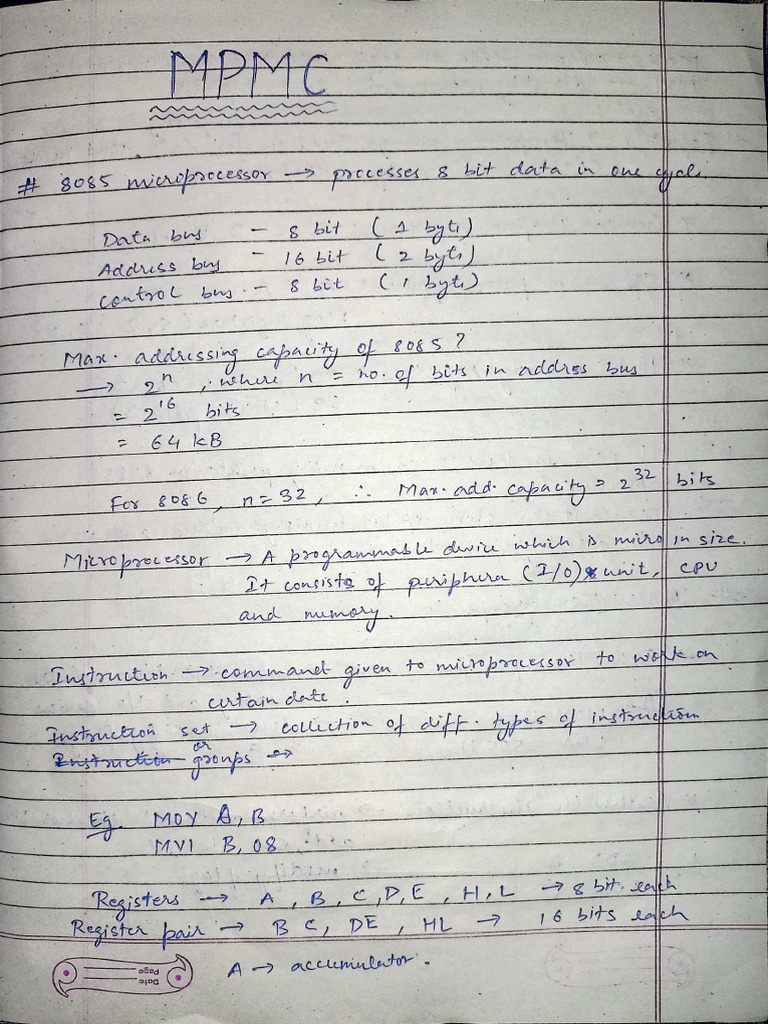 MPMC
# 8085 microprocessor → processes 8 bit data in one cycle.
Data bus - 8 bit (1 byte)
Address bus - 16 bit (2 byte)
Control bus - 8 bit (1 byte)
Max. addressing capacity of 8085?
→ 2^n, where n = no. of bits in address bus
= 2^16 bits
= 64 kB
For 8086, n=32, ∴ Max. add. capacity = 2^32 bits
Microprocessor → A programmable device which is micro in size.
It consists of periphera (I/O) unit, CPU
and memory.
Instruction → command given to microprocessor to work on
certain data.
Instruction set → collection of diff. types of instruction
or
Instruction groups →
Eg. MOV A, B
MVI B, 08
Registers → A, B, C, D, E, H, L → 8 bit each
Register pair → BC, DE, HL → 16 bits each
A → accumulator.
Date
Page